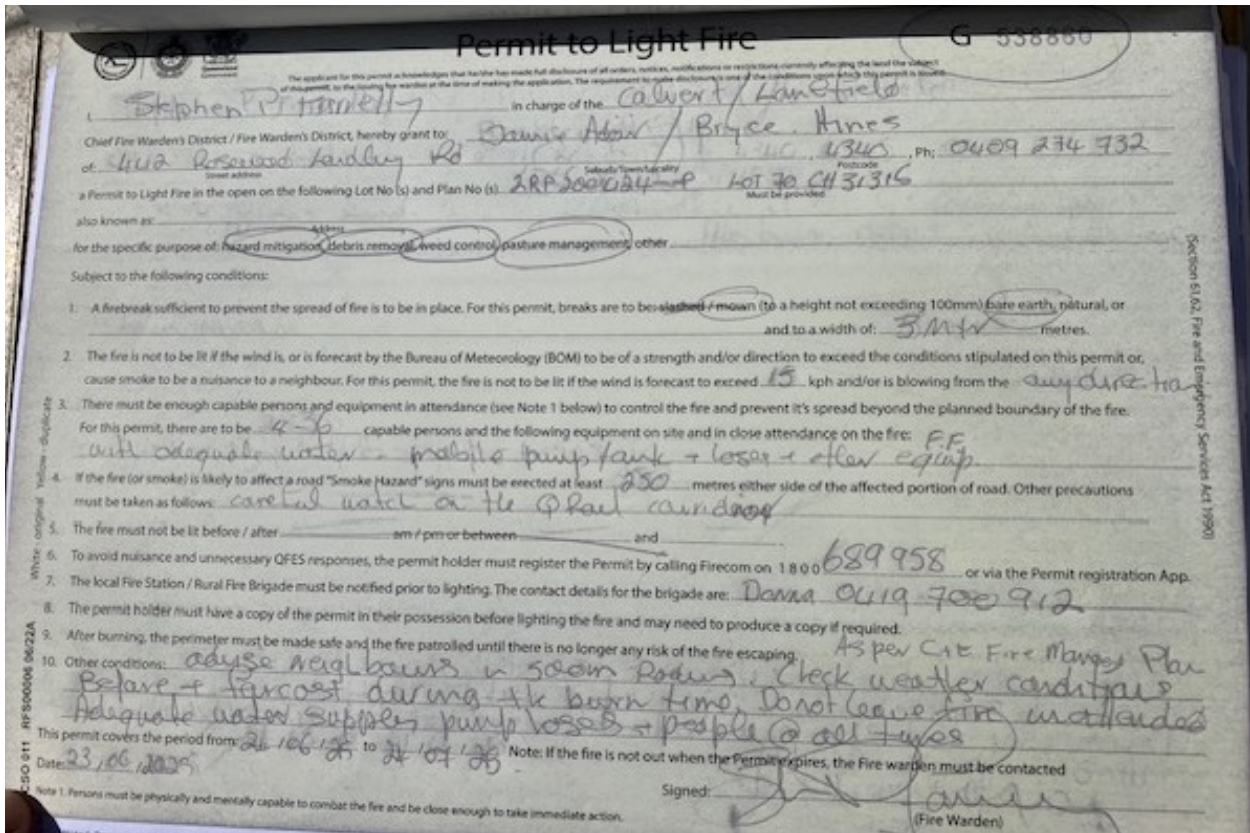 Permit to Light Fire
G 538860
The applicant for this permit acknowledges that he/she has made full disclosure of all orders, notices, notifications or restrictions currently affecting the land the subject
of this permit, to the issuing fire warden at the time of making the application. The requirement to make disclosure is one of the conditions upon which this permit is issued.
I, Stephen in charge of the Calvert / Lanefield
Chief Fire Warden's District / Fire Warden's District, hereby grant to: Adair / Bryce Hines
of 442 Rosewood Laidley Rd 4340 Ph: 0409 274 732
Street address Suburb/Town/Locality Postcode
a Permit to Light Fire in the open on the following Lot No (s) and Plan No (s) LOT 70 CH31315
Must be provided
also known as:
Address
for the specific purpose of: hazard mitigation, debris removal, weed control, pasture management, other
Subject to the following conditions:
1. A firebreak sufficient to prevent the spread of fire is to be in place. For this permit, breaks are to be: slashed / mown (to a height not exceeding 100mm) bare earth, natural, or
and to a width of: 3 metres.
2. The fire is not to be lit if the wind is, or is forecast by the Bureau of Meteorology (BOM) to be of a strength and/or direction to exceed the conditions stipulated on this permit or,
cause smoke to be a nuisance to a neighbour. For this permit, the fire is not to be lit if the wind is forecast to exceed 15 kph and/or is blowing from the any direction
3. There must be enough capable persons and equipment in attendance (see Note 1 below) to control the fire and prevent it's spread beyond the planned boundary of the fire.
For this permit, there are to be 4-36 capable persons and the following equipment on site and in close attendance on the fire: F.F
with adequate water - mobile pump/tank + hoses + other equip.
4. If the fire (or smoke) is likely to affect a road "Smoke Hazard" signs must be erected at least 250 metres either side of the affected portion of road. Other precautions
must be taken as follows: careful watch on the QRail
5. The fire must not be lit before / after am / pm or between and
6. To avoid nuisance and unnecessary QFES responses, the permit holder must register the Permit by calling Firecom on 1800 689958 or via the Permit registration App.
7. The local Fire Station / Rural Fire Brigade must be notified prior to lighting. The contact details for the brigade are: Donna 0419 700 912
8. The permit holder must have a copy of the permit in their possession before lighting the fire and may need to produce a copy if required.
9. After burning, the perimeter must be made safe and the fire patrolled until there is no longer any risk of the fire escaping. As per Fire Plan
10. Other conditions: advise neighbours in 500m Radius. Check weather conditions
Before + forcast during the burn time. Do not leave fire unattended
Adequate water supples, pump hoses + people @ all times
This permit covers the period from: 24/06/25 to 24/07/25 Note: If the fire is not out when the Permit expires, the Fire warden must be contacted
Date: 23/06/2025
Signed:
(Fire Warden)
Note 1. Persons must be physically and mentally capable to combat the fire and be close enough to take immediate action.
(Section 61,62, Fire and Emergency Services Act 1990)
White - original Yellow - duplicate
CSO 011 RFS00006 06/22A